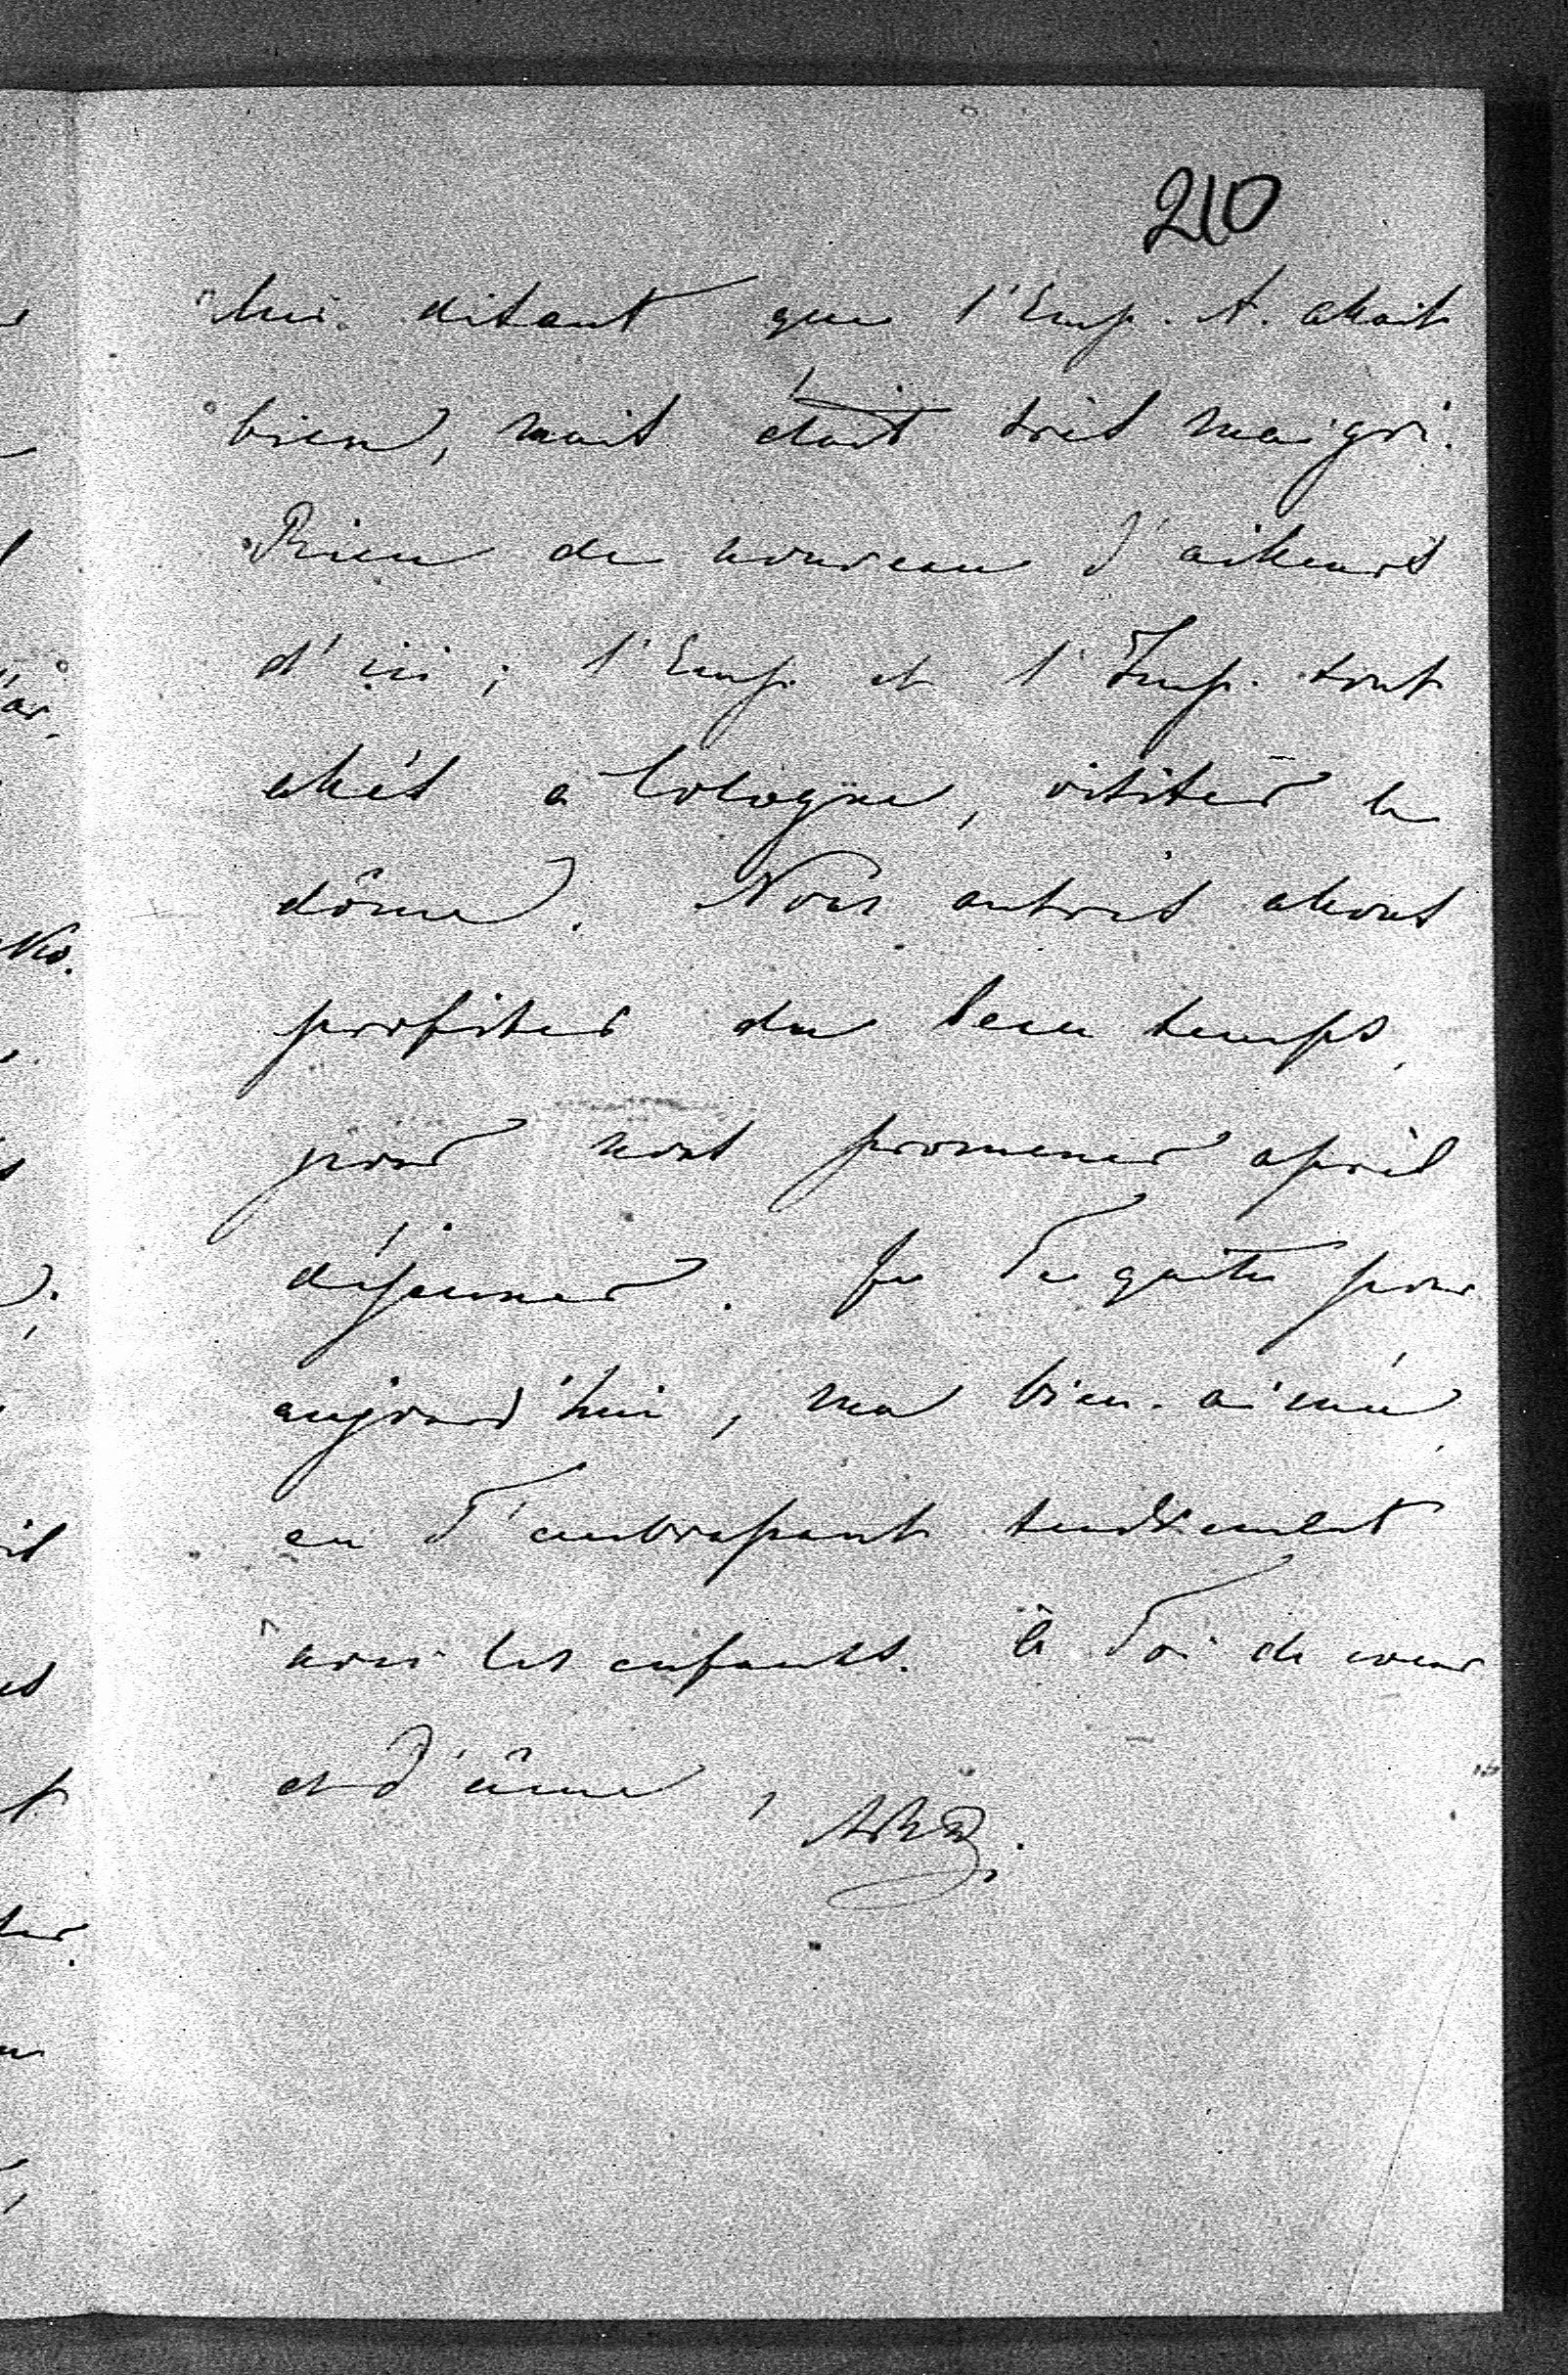 210
lui disant que l'Emp. A. allait
bien, mais était très maigri.
Rien de nouveau d'ailleurs
d'ici; l'Emp. et l'Imp. sont
allés à Cologne, visiter le
dôme. Nous autres allons
profiter du beau temps,
pour nous promener après
déjeuner. Je Te quitte pour
aujourd'hui, ma bien-aimée,
en T'embrassant tendrement
avec les enfants. à Toi de coeur
et d'âme,